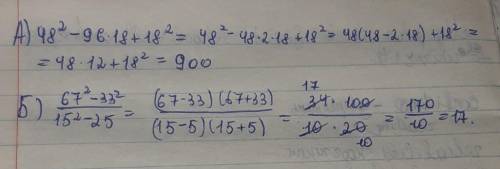 А) 48² - 96·18 + 18² = 48² - 48·2·18 + 18² = 48(48-2·18) + 18² =
= 48·12 + 18² = 900
Б) (67² - 33²)/(15² - 25) = ((67-33)(67+33))/((15-5)(15+5)) = (34·100)/(10·20) = 170/10 = 17.
17
10